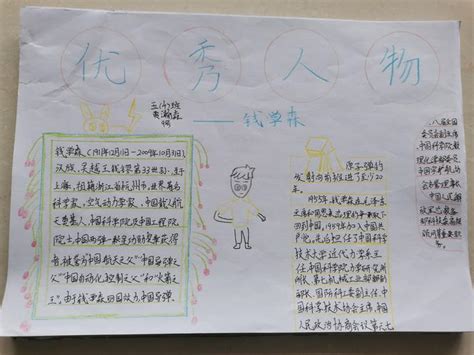 优秀人物
——钱学森
五(4)班
钱学森(1911年12月11日—2009年10月31日),
汉族,吴越王钱镠第33世孙,生于
上海,祖籍浙江省杭州市,世界著名
科学家,空气动力学家,中国载人航
天奠基人,中国科学院及中国工程院
院士,中国两弹一星功勋奖章获得
者,被誉为"中国航天之父""中国导弹之
父""中国自动化控制之父"和"火箭之
王",由于钱学森回国效力,中国导弹、
原子弹的
发射向前推进了至少20
年。
1955年,钱学森在毛泽东
主席和周恩来总理的争取下
回到中国,1959年加入中国共
产党,先后担任了中国科学
技术大学近代力学系主
任,中国科学院力学研究所
所长、第七机械工业部副
部长、国防科工委副主任、中
国科学技术协会主席、中国
人民政治协商会议第六、七
、八届全国
委员会副主席、
中国科学院数
理化学部委员、
中国宇航学
会名誉理事长、
中国人民解
放军总装备
部科技委高级
顾问等重要职
务。